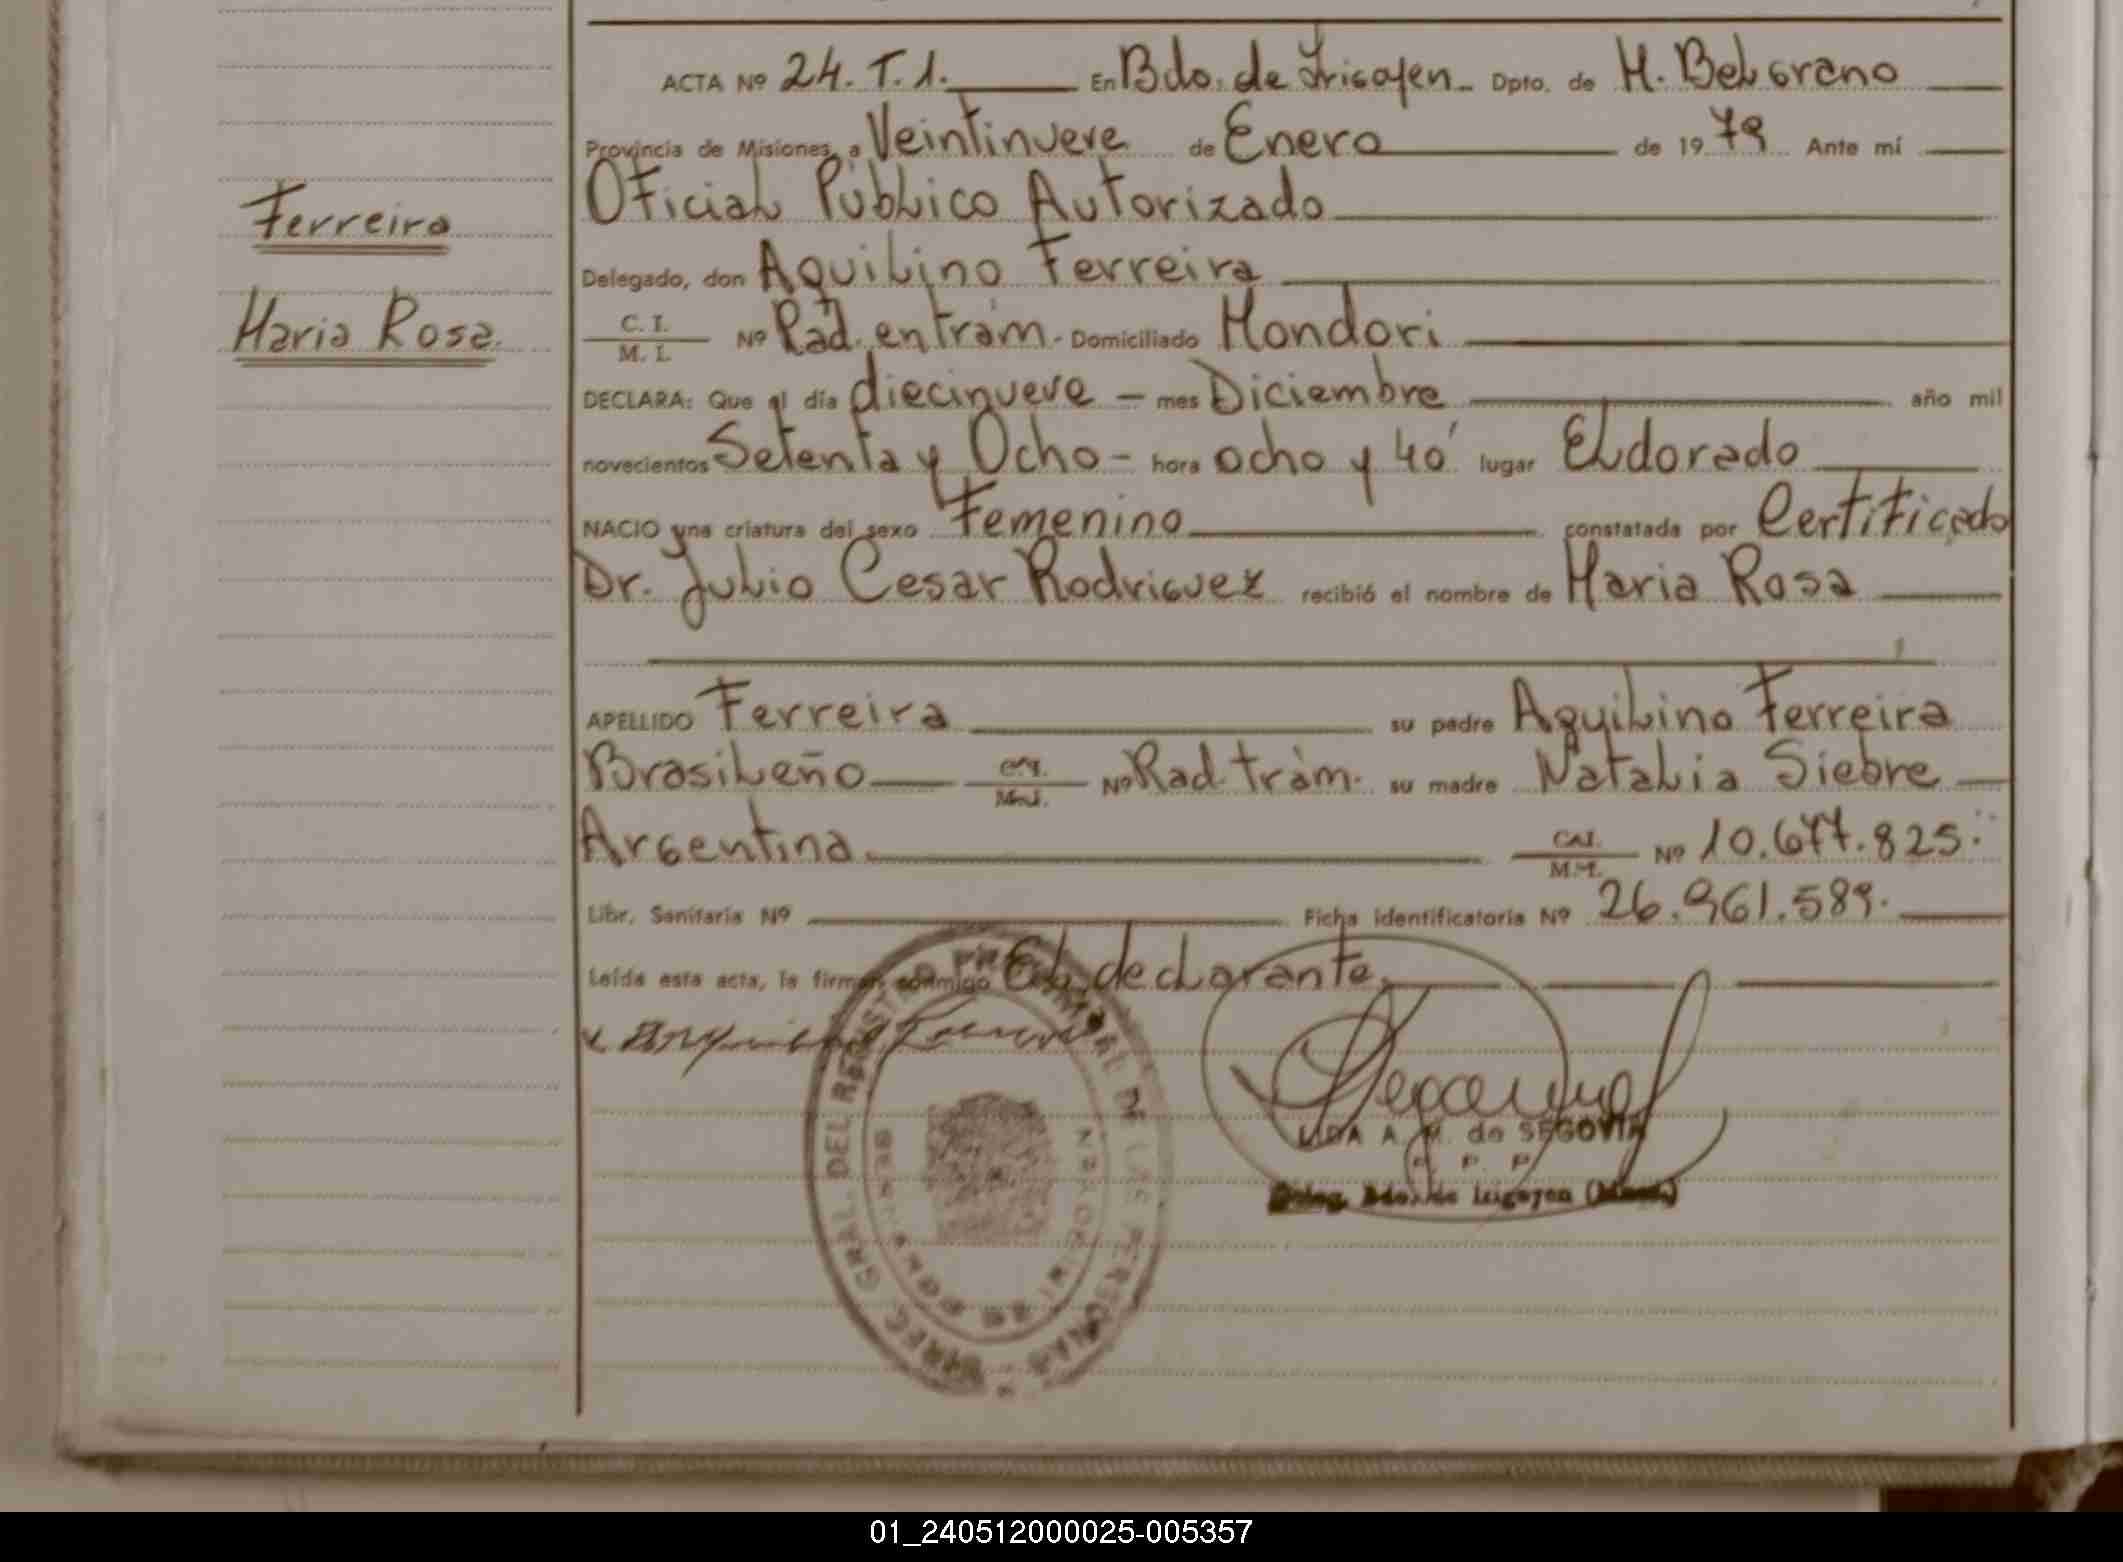 ACTA Nº 24. T. 1. En Bdo. de Irigoyen - Dpto. de M. Belgrano
Provincia de Misiones, a Veintinueve de Enero de 1979 Ante mí
Oficial Público Autorizado
Ferreira
Delegado, don Aquilino Ferreira
Maria Rosa.
C. I.
M. I.
Nº Rad. en trám. Domiciliado Mondori
DECLARA: Que el día diecinueve - mes Diciembre año mil
novecientos Setenta y Ocho - hora ocho y 40' lugar Eldorado
NACIO una criatura del sexo Femenino constatada por Certificado
Dr. Julio Cesar Rodriguez recibió el nombre de Maria Rosa
APELLIDO Ferreira su padre Aquilino Ferreira
Brasileño Nº Rad. trám. su madre Natalia Siebre
Argentina Nº 10.677.825.
Libr. Sanitaria Nº Ficha identificatoria Nº 26.961.589.
Leída esta acta, la firman conmigo El declarante
DIREC. GRAL. DEL REGISTRO PROVINCIAL DE LAS PERSONAS
LIDA A. M. de SEGOVIA
Deleg. Bdo. de Irigoyen (Mnes.)
01_240512000025-005357